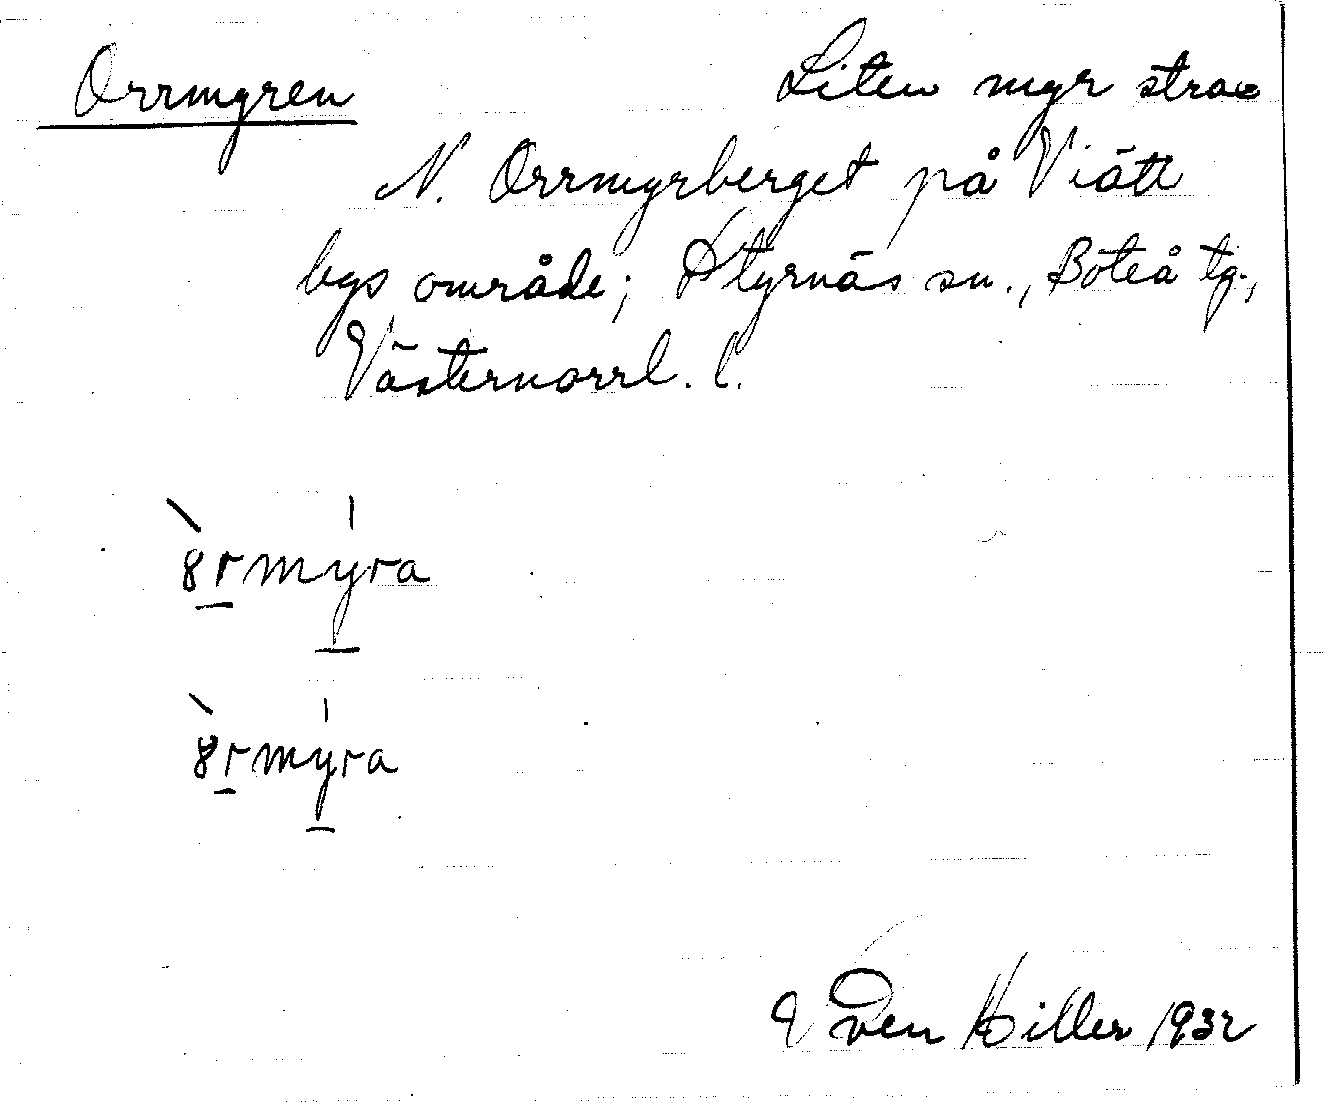 Orrmyren Liten myr strax
N. Orrmyrberget på Viätt
bys område; Styrnäs sn., Boteå tg.,
Västernorrl. l.
ˋ8rmˈyra
ˋ8rmˈyra
Sven Hiller 1932